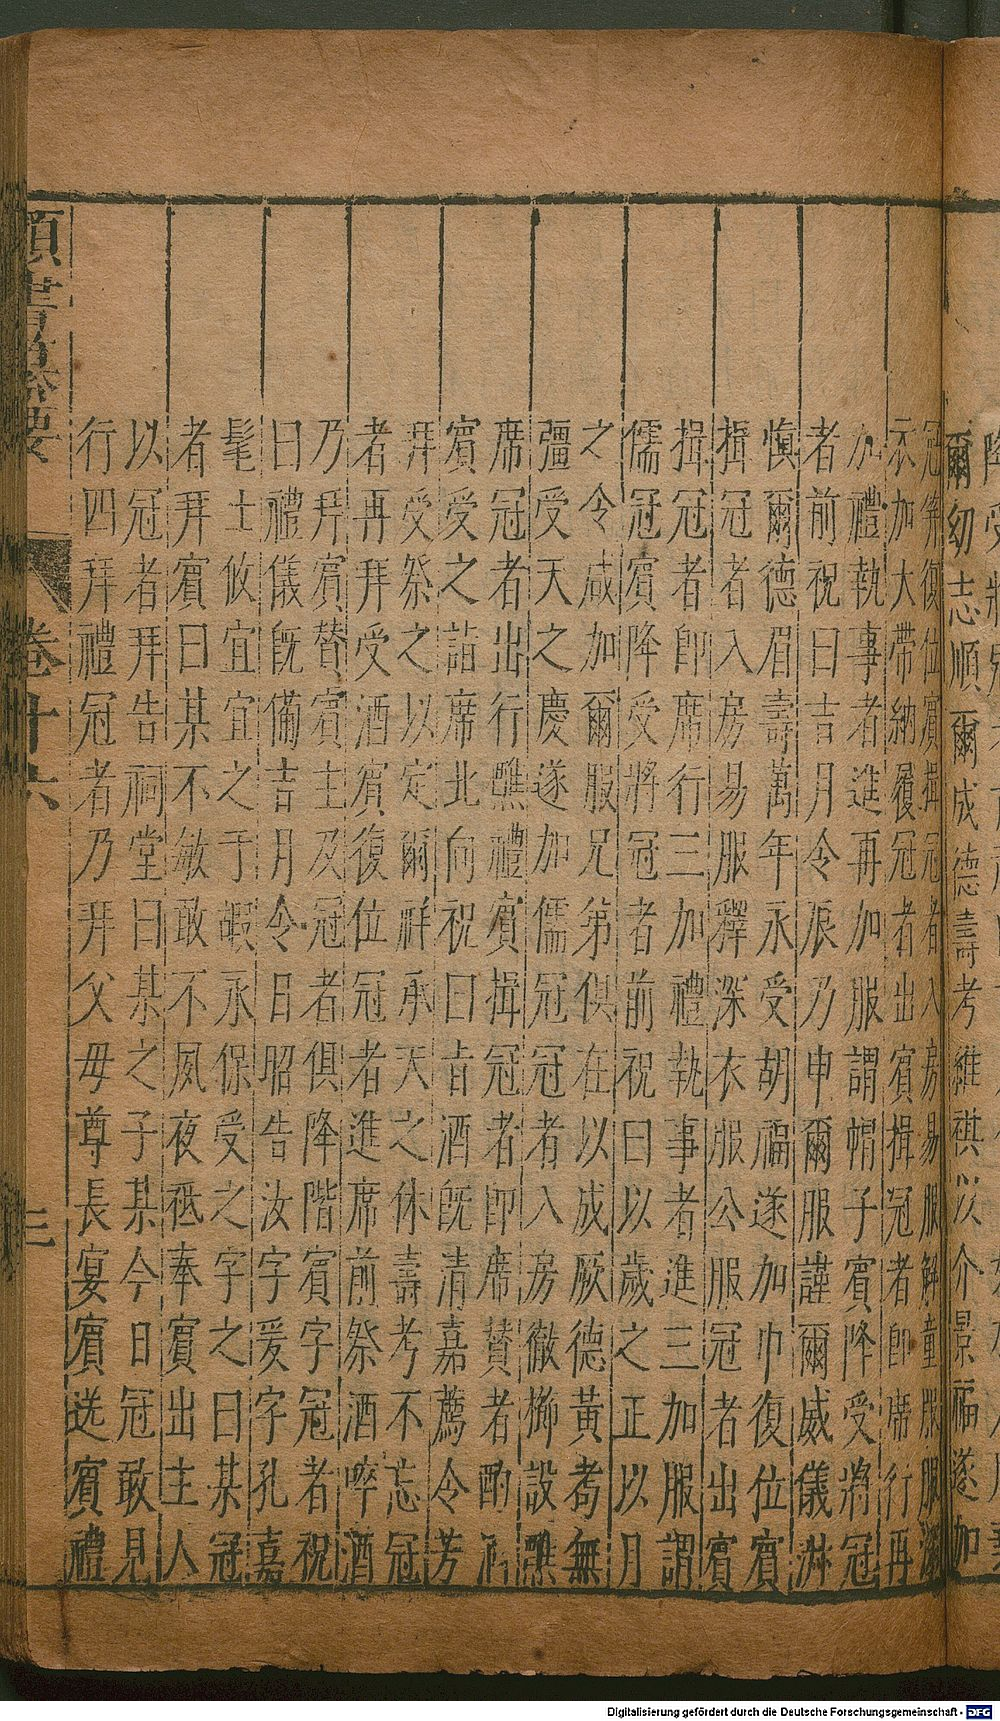 爾幼志順爾成德壽考維祺以介景福遂加
冠笄復位賓揖冠者入房易服解童服服深
衣加大帶納履冠者出賓揖冠者卽席行再
加禮執事者進再加服謂帽子賓降受將冠
者前祝曰吉月令辰乃申爾服謹爾威儀淋
慎爾德眉壽萬年永受胡福遂加巾復位賓
揖冠者入房易服釋深衣服公服冠者出賓
揖冠者卽席行三加禮執事者進三加服謂
儒冠賓降受將冠者前祝曰以歲之正以月
之令咸加爾服兄第俱在以成厥德黃耇無
彊受天之慶遂加儒冠冠者入房徹櫛設醮
席冠者出行醮禮賓揖冠者卽席贊者酌酒
賓受之詣席北向祝曰㫖酒旣清嘉薦令芳
拜受祭之以定爾祥承天之休壽考不忘冠
者再拜受酒賓復位冠者進席前祭酒啐酒
乃拜賓贊賓主及冠者俱降階賓字冠者祝
曰禮儀旣備吉月令日昭告汝字爰字孔嘉
髦士攸宜宜之于嘏永保受之字之曰某冠
者拜賓曰某不敏敢不夙夜祗奉賓出主人
以冠者拜告祠堂曰某之子某今日冠敢見
行四拜禮冠者乃拜父毋尊長宴賓送賓禮
卷十六
三
Digitalisierung gefördert durch die Deutsche Forschungsgemeinschaft - DFG